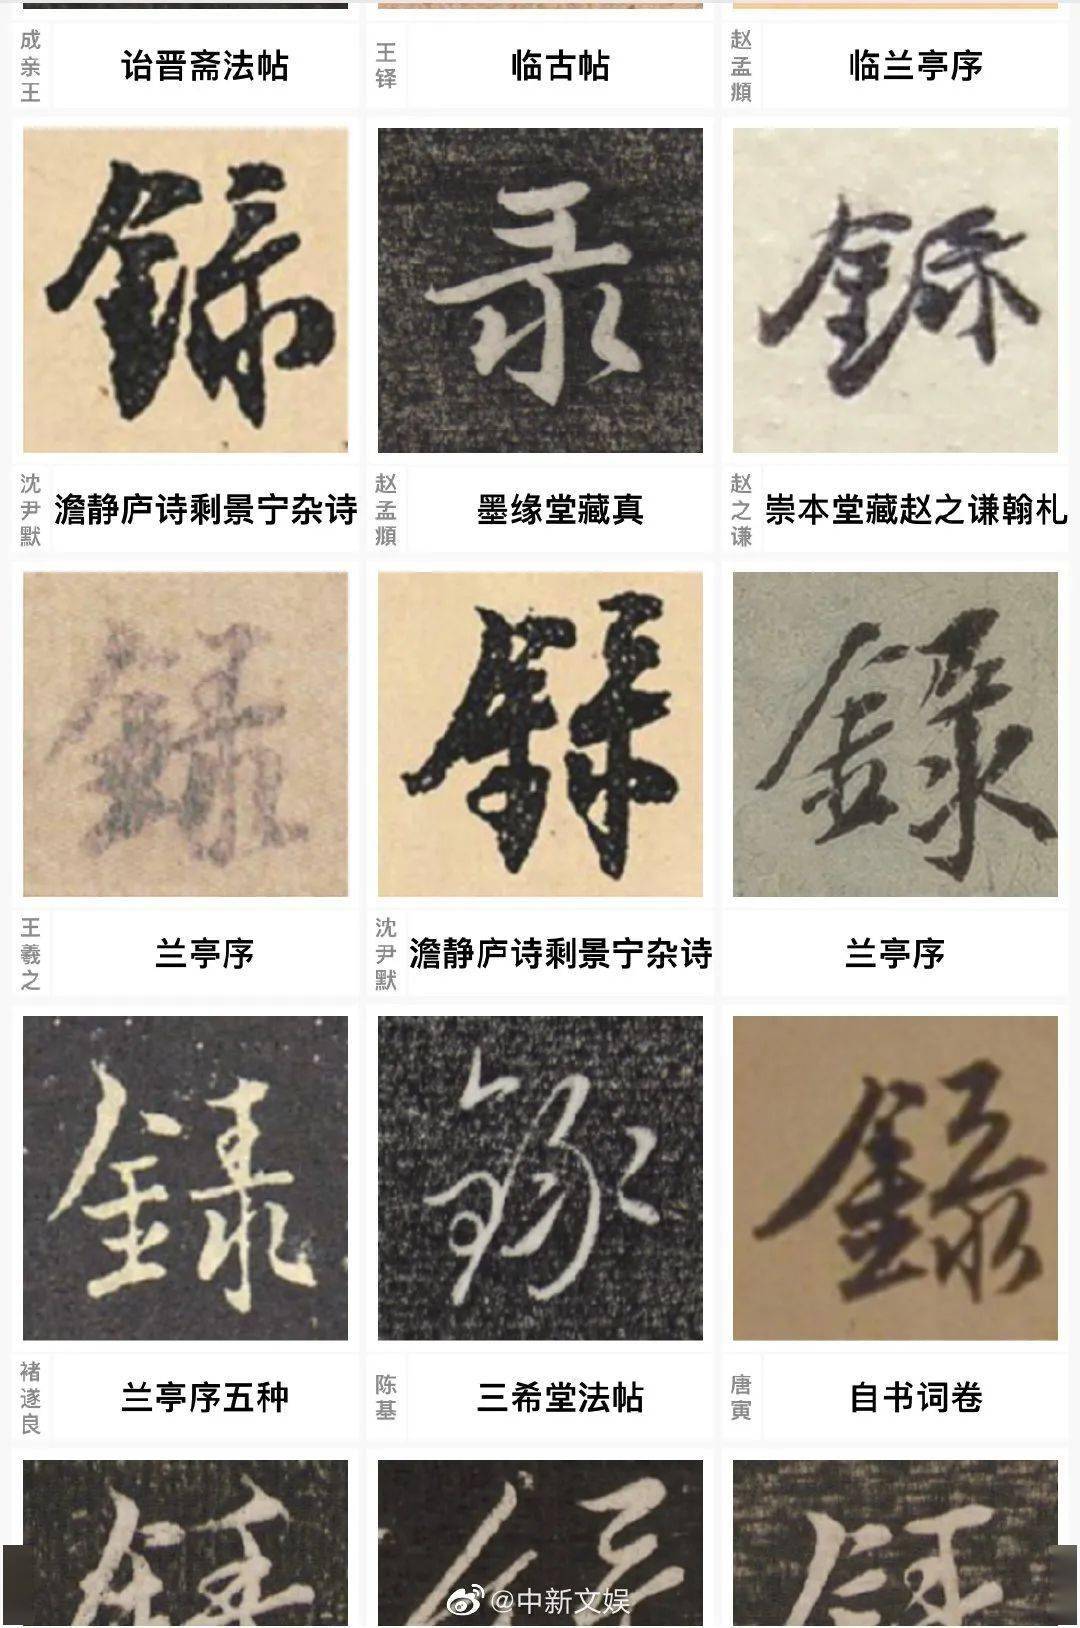 成亲王
诒晋斋法帖
王铎
临古帖
赵孟頫
临兰亭序
録
录
録
沈尹默
澹静庐诗剩景宁杂诗
赵孟頫
墨缘堂藏真
赵之谦
崇本堂藏赵之谦翰札
録
録
録
王羲之
兰亭序
沈尹默
澹静庐诗剩景宁杂诗
兰亭序
録
録
録
褚遂良
兰亭序五种
陈基
三希堂法帖
唐寅
自书词卷
@中新文娱